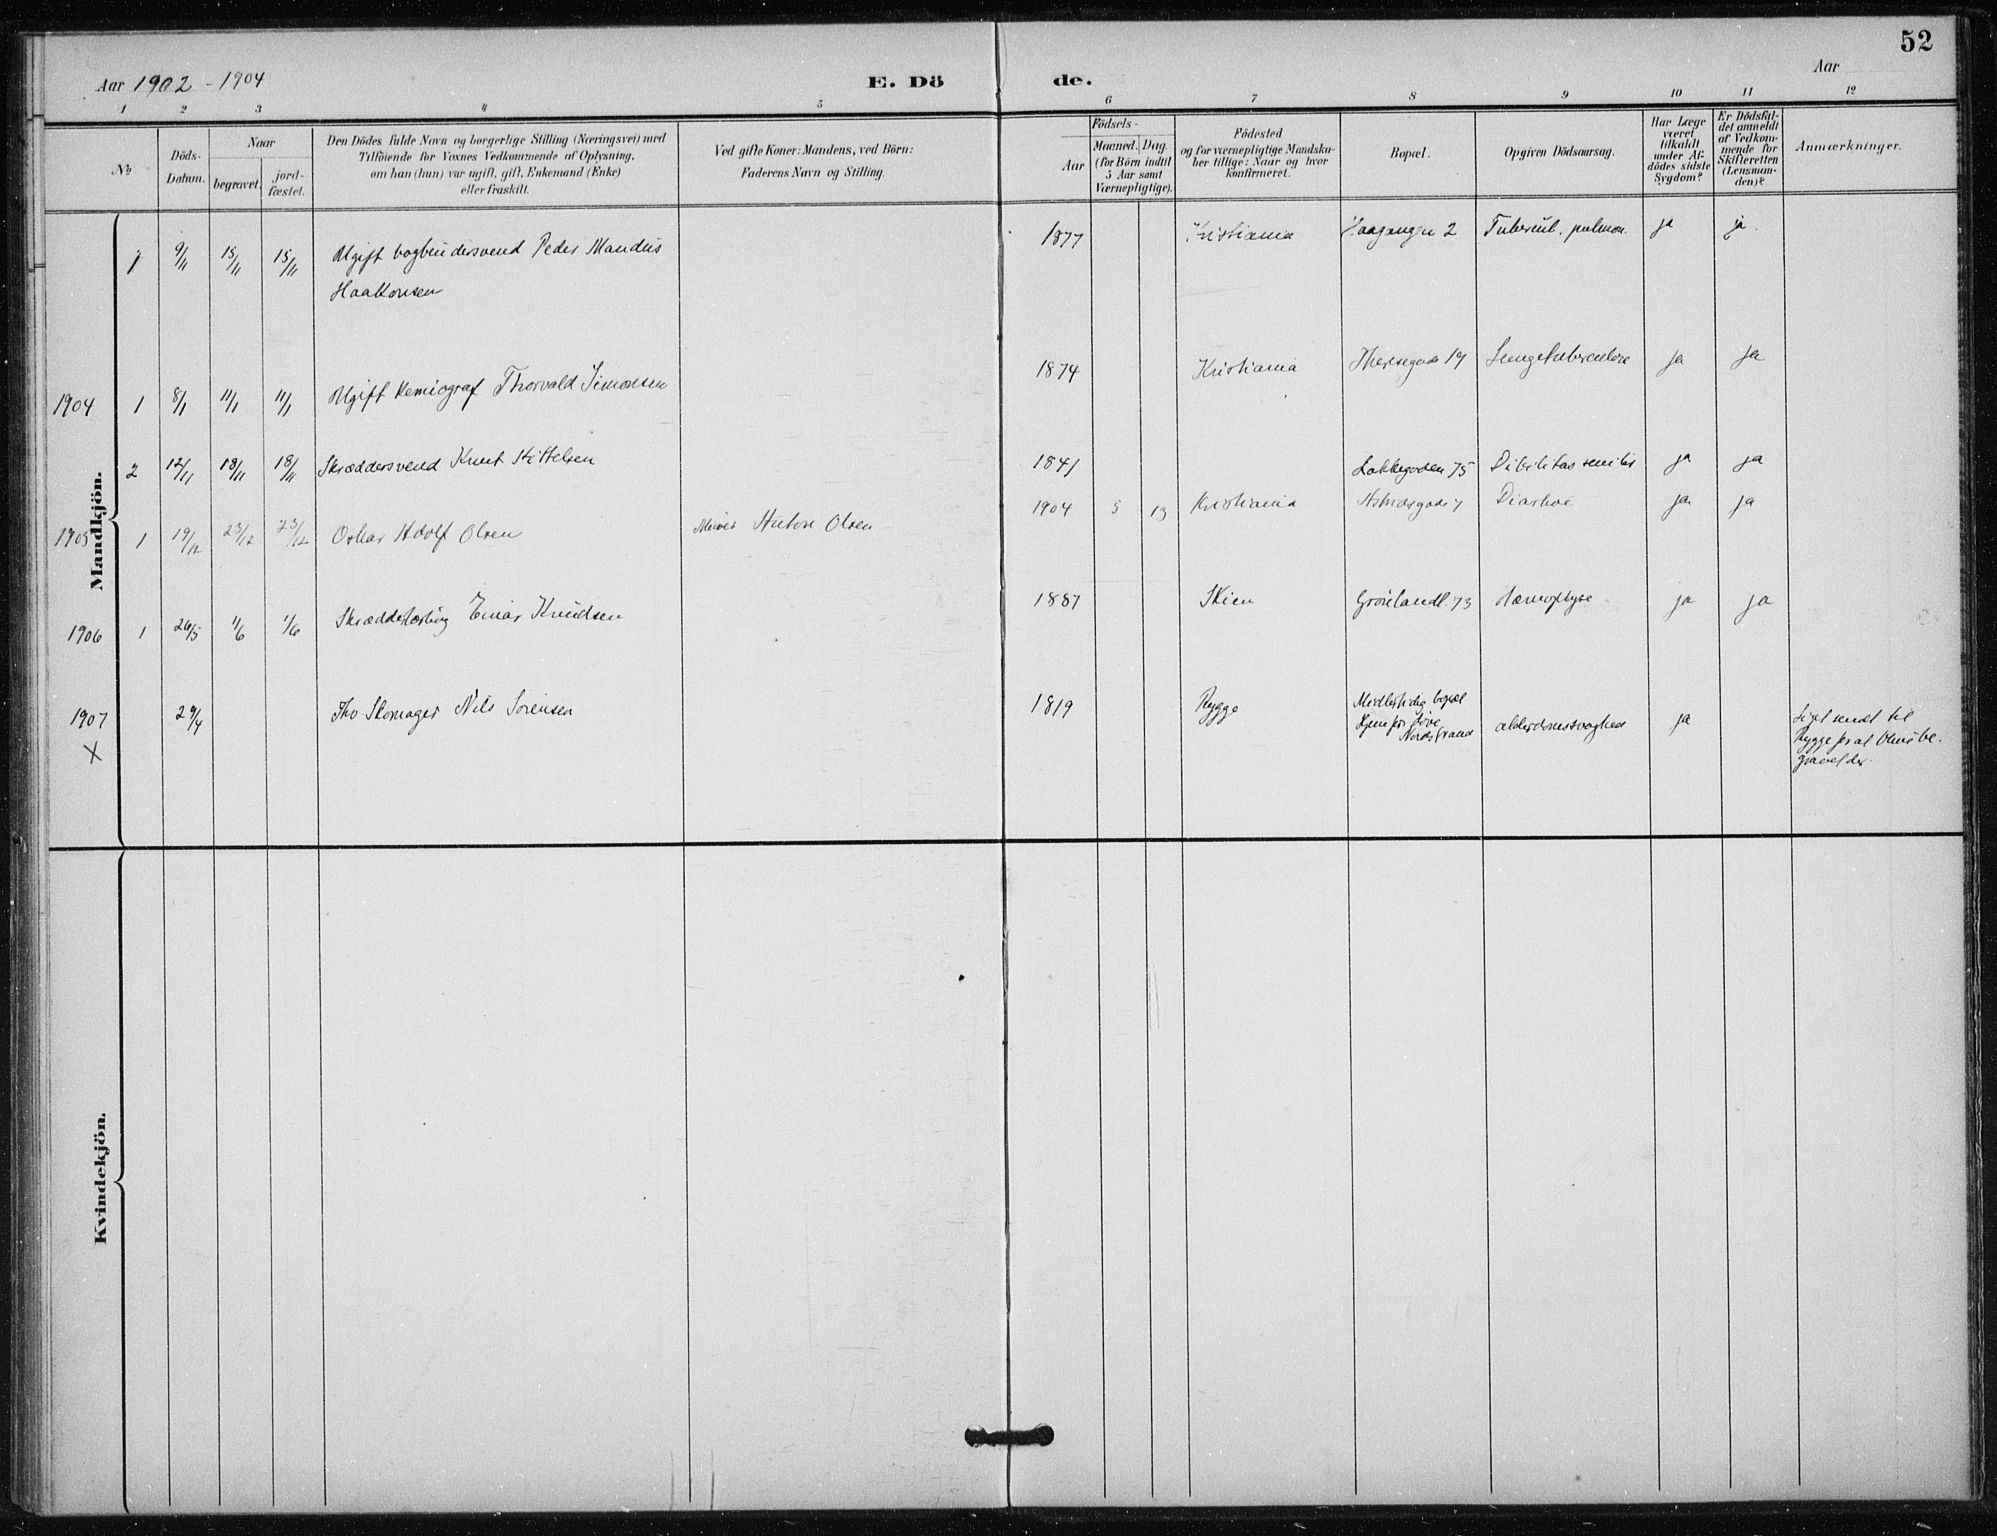 52
Aar 1902 - 1904
E. Dö
de.
Aar
1 2 3 4 5 6 7 8 9 10 11 12
No
Döds-
Datum.
Naar
begravet.
jord-
fæstet.
Den Dödes fulde Navn og borgerlige Stilling (Næringsvei) med
Tilföiende for Voxnes Vedkommende af Oplysning,
om han (hun) var ugift, gift, Enkemand (Enke)
eller fraskilt.
Ved gifte Koner: Mandens, ved Börn:
Faderens Navn og Stilling.
Födsels-
Aar
Maaned. Dag.
(for Börn indtil
5 Aar samt
Værnepligtige).
Födested
og for værnepligtige Mandska-
ber tillige: Naar og hvor
konfirmeret.
Bopæl.
Opgiven Dödsaarsag.
Har Læge
været
tilkaldt
under Af-
dödes sidste
Sygdom?
Er Dödsfal-
det anmeldt
af Vedkom-
mende for
Skifteretten
(Lensman-
den)?
Anmærkninger.
Mandkjön.
1 9/11 15/11 15/11 Ugift bogbindersvend Peder Mandius
Haakonsen
1877 Kristiania 2 Tubercul. pulmon. ja ja.
1904 1 8/1 11/1 11/1 Ugift kemigraf Thorvald Simonsen 1874 Kristiania Theresegade 19 Lungetuberculose ja ja
2 12/11 18/11 18/11 Skræddersvend Knut Kittelsen 1841 Lakkegaden 75 Dibilitas senilis ja ja
1905 1 19/12 23/12 23/12 Oskar Adolf Olsen Murer Anton Olsen 1904 5 13 Kristiania Diarhoe ja ja
1906 1 26/5 1/6 1/6 Skrædderlærling Einar Knudsen 1887 Skien Grønlandl. 73 Hæmoptyse ja ja
1907 29/4 Fhv Skomager Nils Sorensen 1819 Rygge Midlertidig bopæl
Hjem for Døve
Nordstrand alderdomssvaghed ja Liget sendt til
Rygge for at blive be-
gravet der.
X
Kvindekjön.